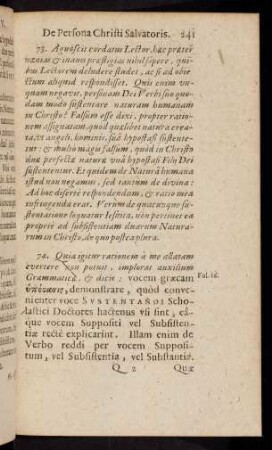 De Persona Christi Salvatoris. 241
73. Agnoscit cordatus Lector, hæc præter
nænias & inanes præstigias nihil sapere, qui-
bus Lectorem deludere studes, ac si ad obie-
ctum aliquid respondisset. Quis enim un-
quam negavit, personam Dei Verbi suo quo-
dam modo sustentare naturam humanam
in Christo? Falsum esse dixi, propter ratio-
nem assignatam, quod quælibet natura crea-
ta, ut angeli, hominis, suâ hypostasi sustente-
tur: & multo magis falsum, quòd in Christo
duæ perfectæ naturæ unâ hypostasi Filii Dei
sustententur. Et quidem de Naturâ humanâ
istud non negamus, sed tantùm de divina:
Ad hoc diserte respondendum, & ratio mea
infringenda erat. Verùm de quacunque su-
stentatione loquatur Iesuita, non pertinet ea
propriè ad subsistentiam duarum Naturа-
rum in Christo, de quo postea plura.
74. Quia igitur rationem à me allatam
evertere non potuit, implorat auxilium
Grammaticæ, & dicit; vocem græcam
ὑπόστασις, demonstrare, quòd conve-
nienter voce SUSTENTANDI Scho-
lastici Doctores hactenus usi sint, eâ-
que vocem Suppositi vel Subsisten-
tiæ rectè explicarint. Illam enim de
Verbo reddi per vocem Supposi-
tum, vel Subsistentia, vel Substantia.
Fol. 16.
Q 2 Quæ